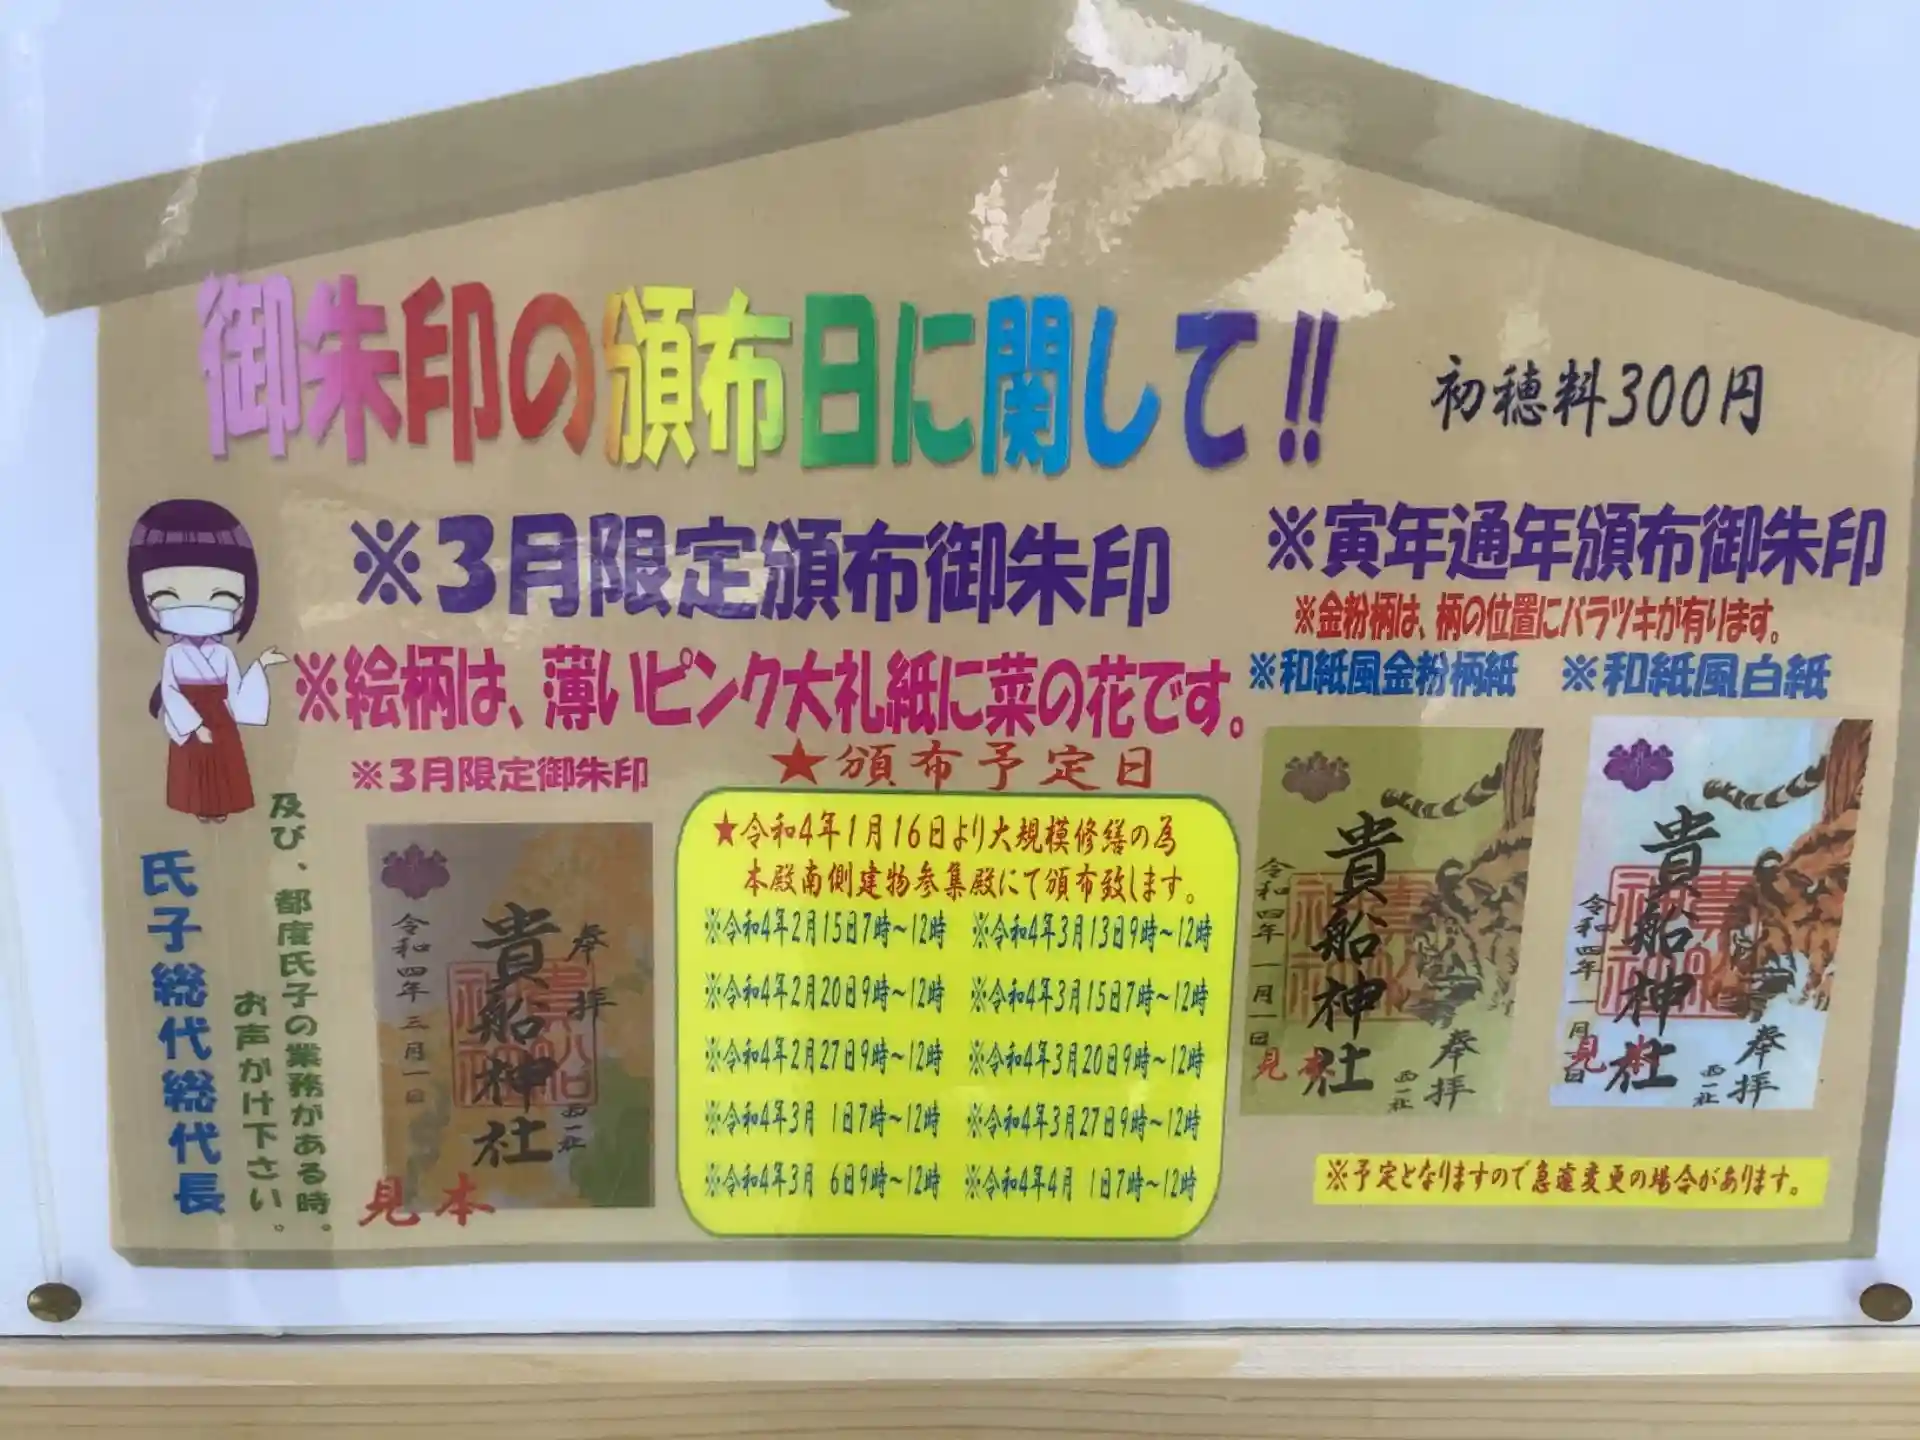 御朱印の頒布日に関して!!
初穂料300円
※3月限定頒布御朱印
※絵柄は、薄いピンク大礼紙に菜の花です。
※3月限定御朱印
奉拝
貴船神社
西一社
令和四年三月一日
見本
★頒布予定日
★令和4年1月16日より大規模修繕の為
本殿南側建物参集殿にて頒布致します。
※令和4年2月15日7時～12時
※令和4年2月20日9時～12時
※令和4年2月27日9時～12時
※令和4年3月 1日7時～12時
※令和4年3月 6日9時～12時
※令和4年3月13日9時～12時
※令和4年3月15日7時～12時
※令和4年3月20日9時～12時
※令和4年3月27日9時～12時
※令和4年4月 1日7時～12時
※寅年通年頒布御朱印
※金粉柄は、柄の位置にバラツキが有ります。
※和紙風金粉柄紙
貴船神社
奉拝
西一社
令和四年一月一日
見本
※和紙風白紙
貴船神社
奉拝
西一社
令和四年一月一日
見本
※予定となりますので急遽変更の場合があります。
及び、都度氏子の業務がある時。
お声がけ下さい。
氏子総代総代長